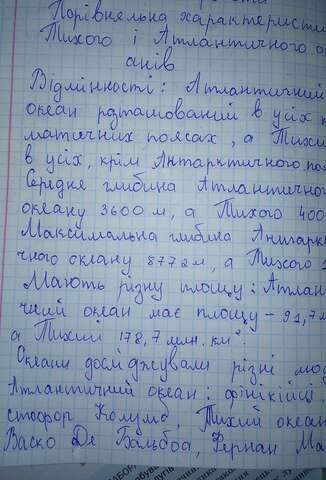 Порівняльна характеристи
Тихого і Атлантичного о
анів
Відмінності: Атлантичний
океан розташований в усіх к
матичних поясах, а Тихи
в усіх, крім Антарктичного по
Середня глибина Атлантичног
океану 3600 м, а Тихого 400
Максимальна глибина Антарк
чного океану 8772 м, а Тихого 1
Мають різну площу: Атлан
чий океан має площу - 91,7 м
а Тихий 178,7 млн. км²
Океани досліджували різні мо
Атлантичний океан: фінікійці
стофор Колумб, Тихий океан
Васко Де Бальбоа, Фернан Ма